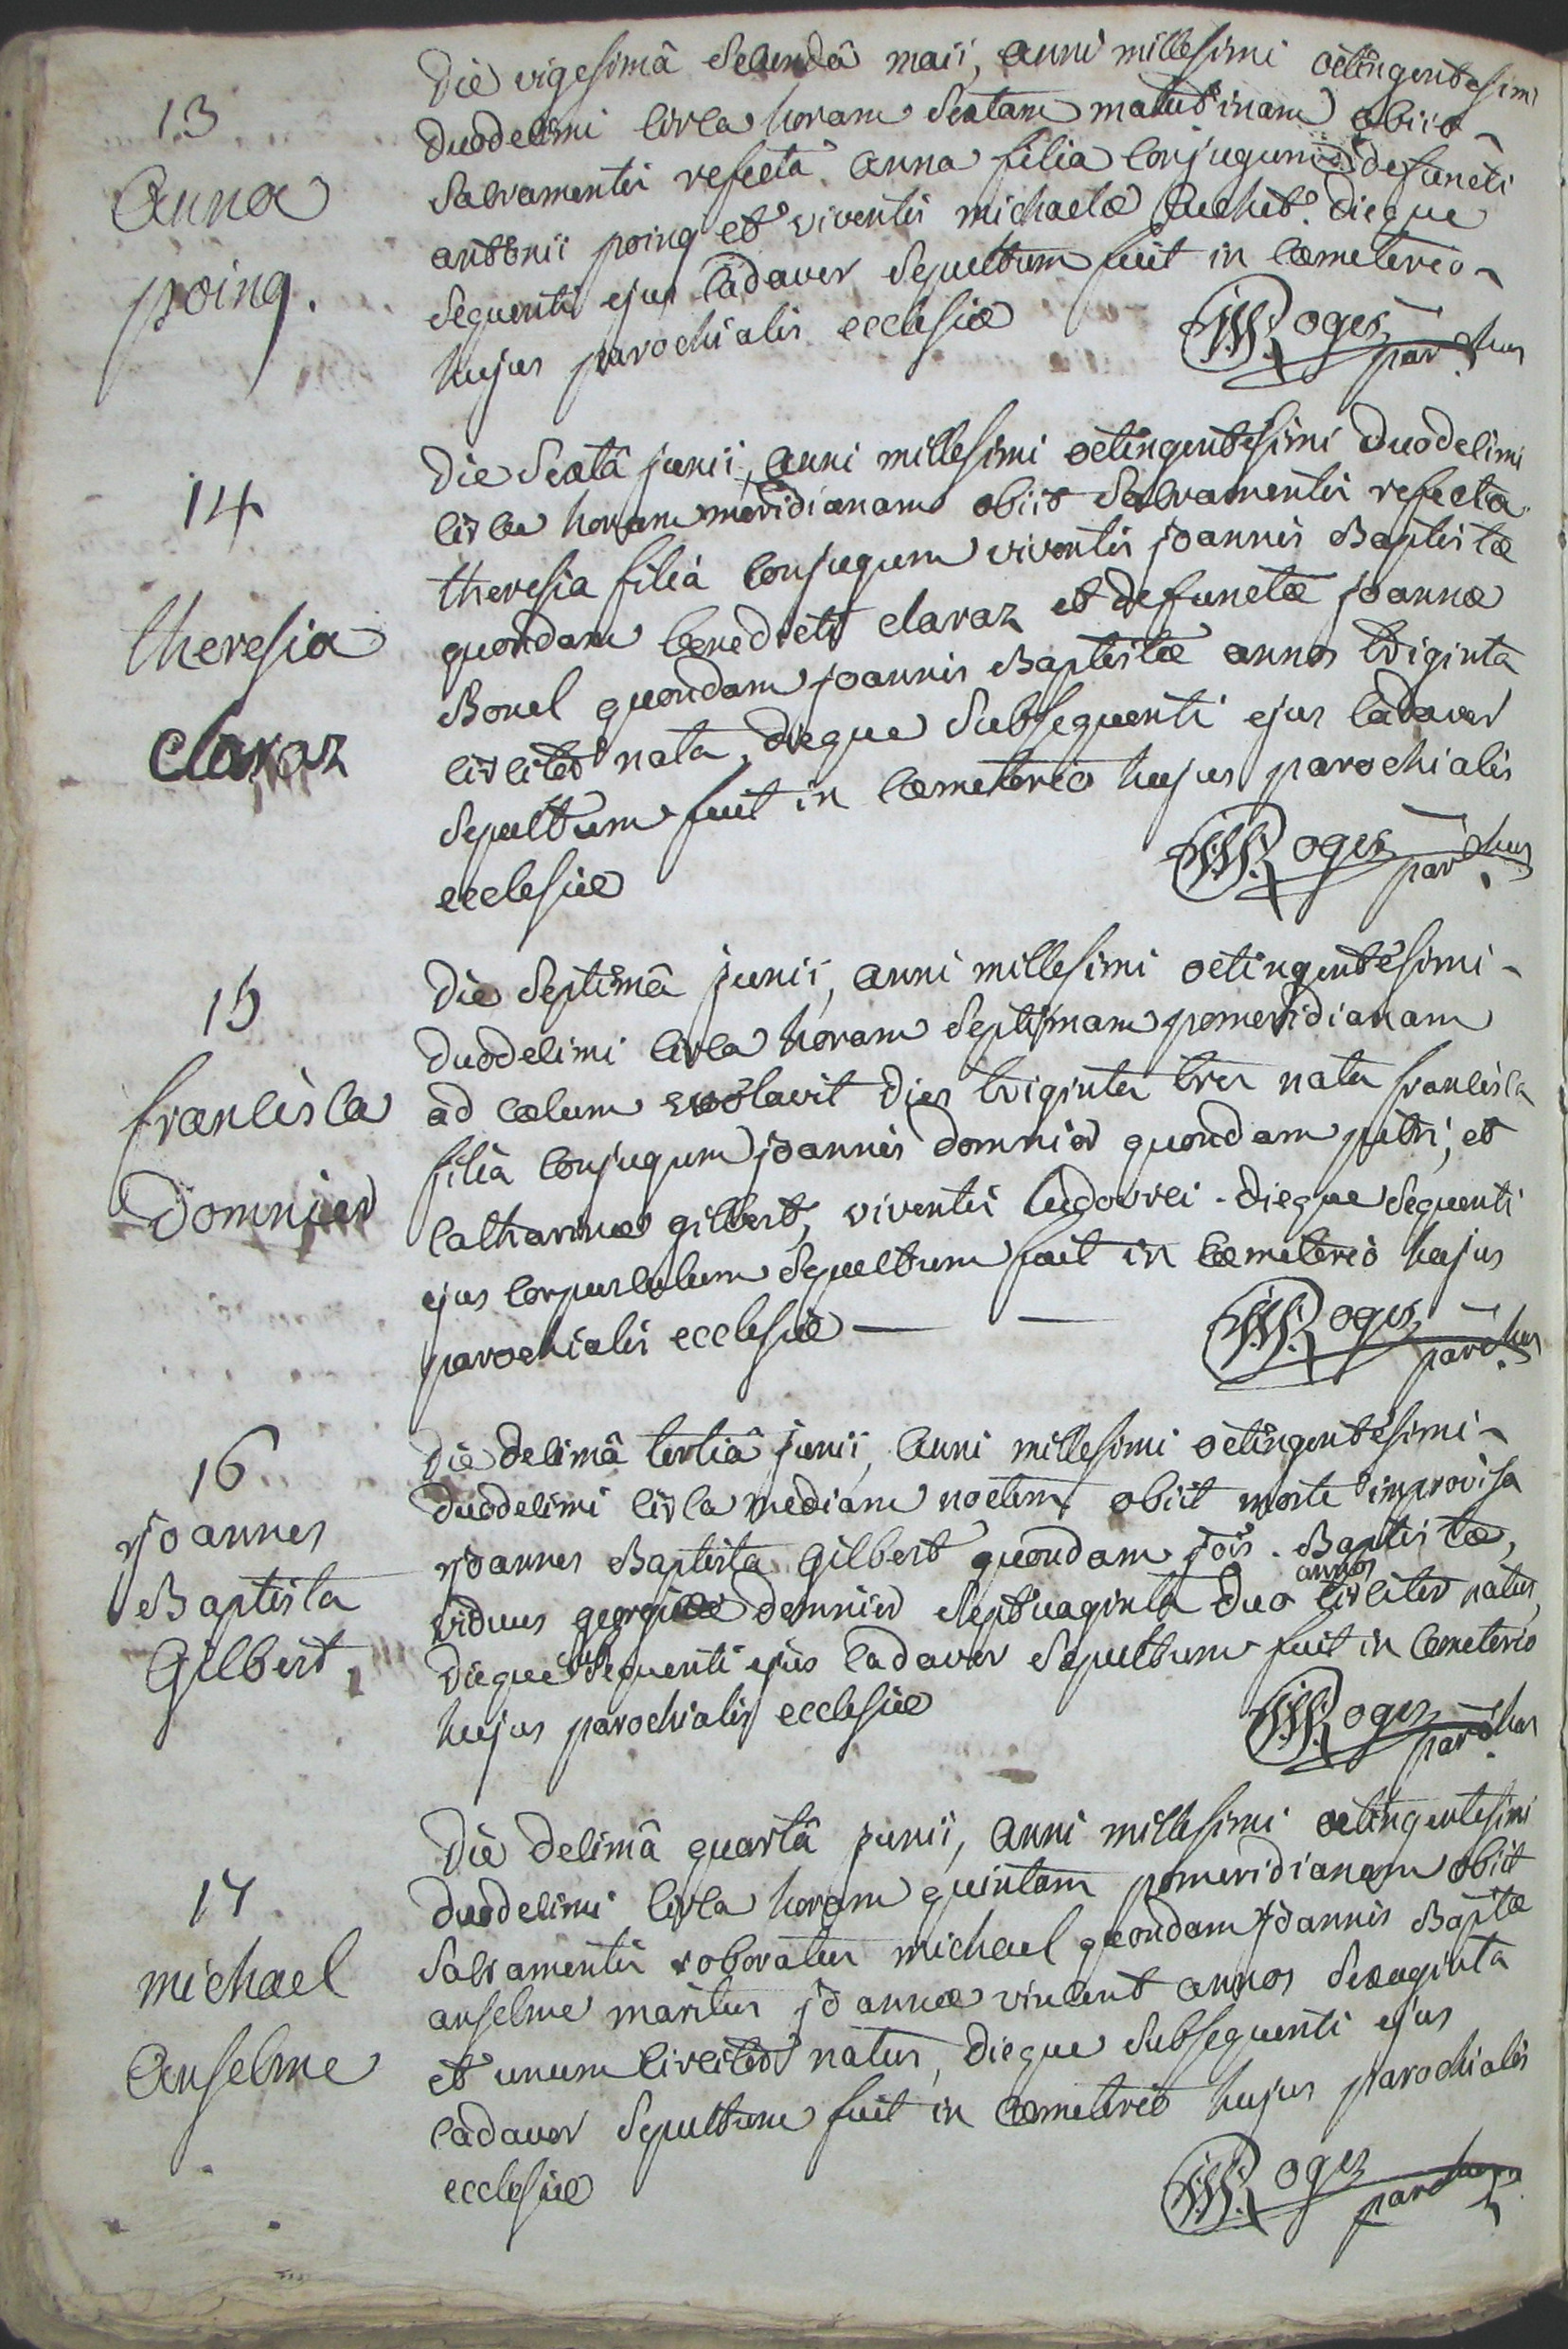 13
Anna
poing.
Die vigesimâ secundâ maii, anni millesimi octingentesimi
duodecimi circa horam sextam matutinam obiit
sacramentis refecta anna filia conjugum defuncti
antonii poing et viventis michaelæ Dieque
sequenti ejus cadaver sepultum fuit in cœmeterio
hujus parochialis ecclesiæ
Roges parochus
14
theresia
claraz
Die sextâ junii, anni millesimi octingentesimi duodecimi
circa horam meridianam obiit sacramentis refecta
theresia filia conjugum viventis joannis Baptistæ
quondam benedicti claraz et defunctæ joannæ
Bonel quondam joannis Baptistæ annos triginta
circiter nata, dieque subsequenti ejus cadaver
sepultum fuit in cœmeterio hujus parochialis
ecclesiæ
Roges parochus
15
francisca
Domnier
Die septimâ junii, anni millesimi octingentesimi
duodecimi circa horam septimam pomeridianam
ad cælum evolavit dies triginta tres nata francisca
filia conjugum joannis domnier quondam petri, et
catharinæ gilbert, viventis ludovici. dieque sequenti
ejus corpusculum sepultum fuit in cœmeterio hujus
parochialis ecclesiæ
Roges parochus
16
Joannes
Baptista
Gilbert,
Die decimâ tertiâ junii, anni millesimi octingentesimi
duodecimi circa mediam noctem obiit morte improvisa
joannes Baptista Gilbert quondam jois. Baptistæ,
viduus georgiæ domnier septuaginta duo annos circiter natus,
dieque sequenti ejus cadaver sepultum fuit in cœmeterio
hujus parochialis ecclesiæ
Roges parochus
17
michael
Anselme
Die decimâ quartâ junii, anni millesimi octingentesimi
duodecimi circa horam quintam pomeridianam obiit
sacramentis roboratus michael quondam joannis Baptæ
anselme maritus joannæ vincent annos sexaginta
et unum circiter natus, dieque subsequenti ejus
cadaver sepultum fuit in cœmeterio hujus parochialis
ecclesiæ
Roges parochus